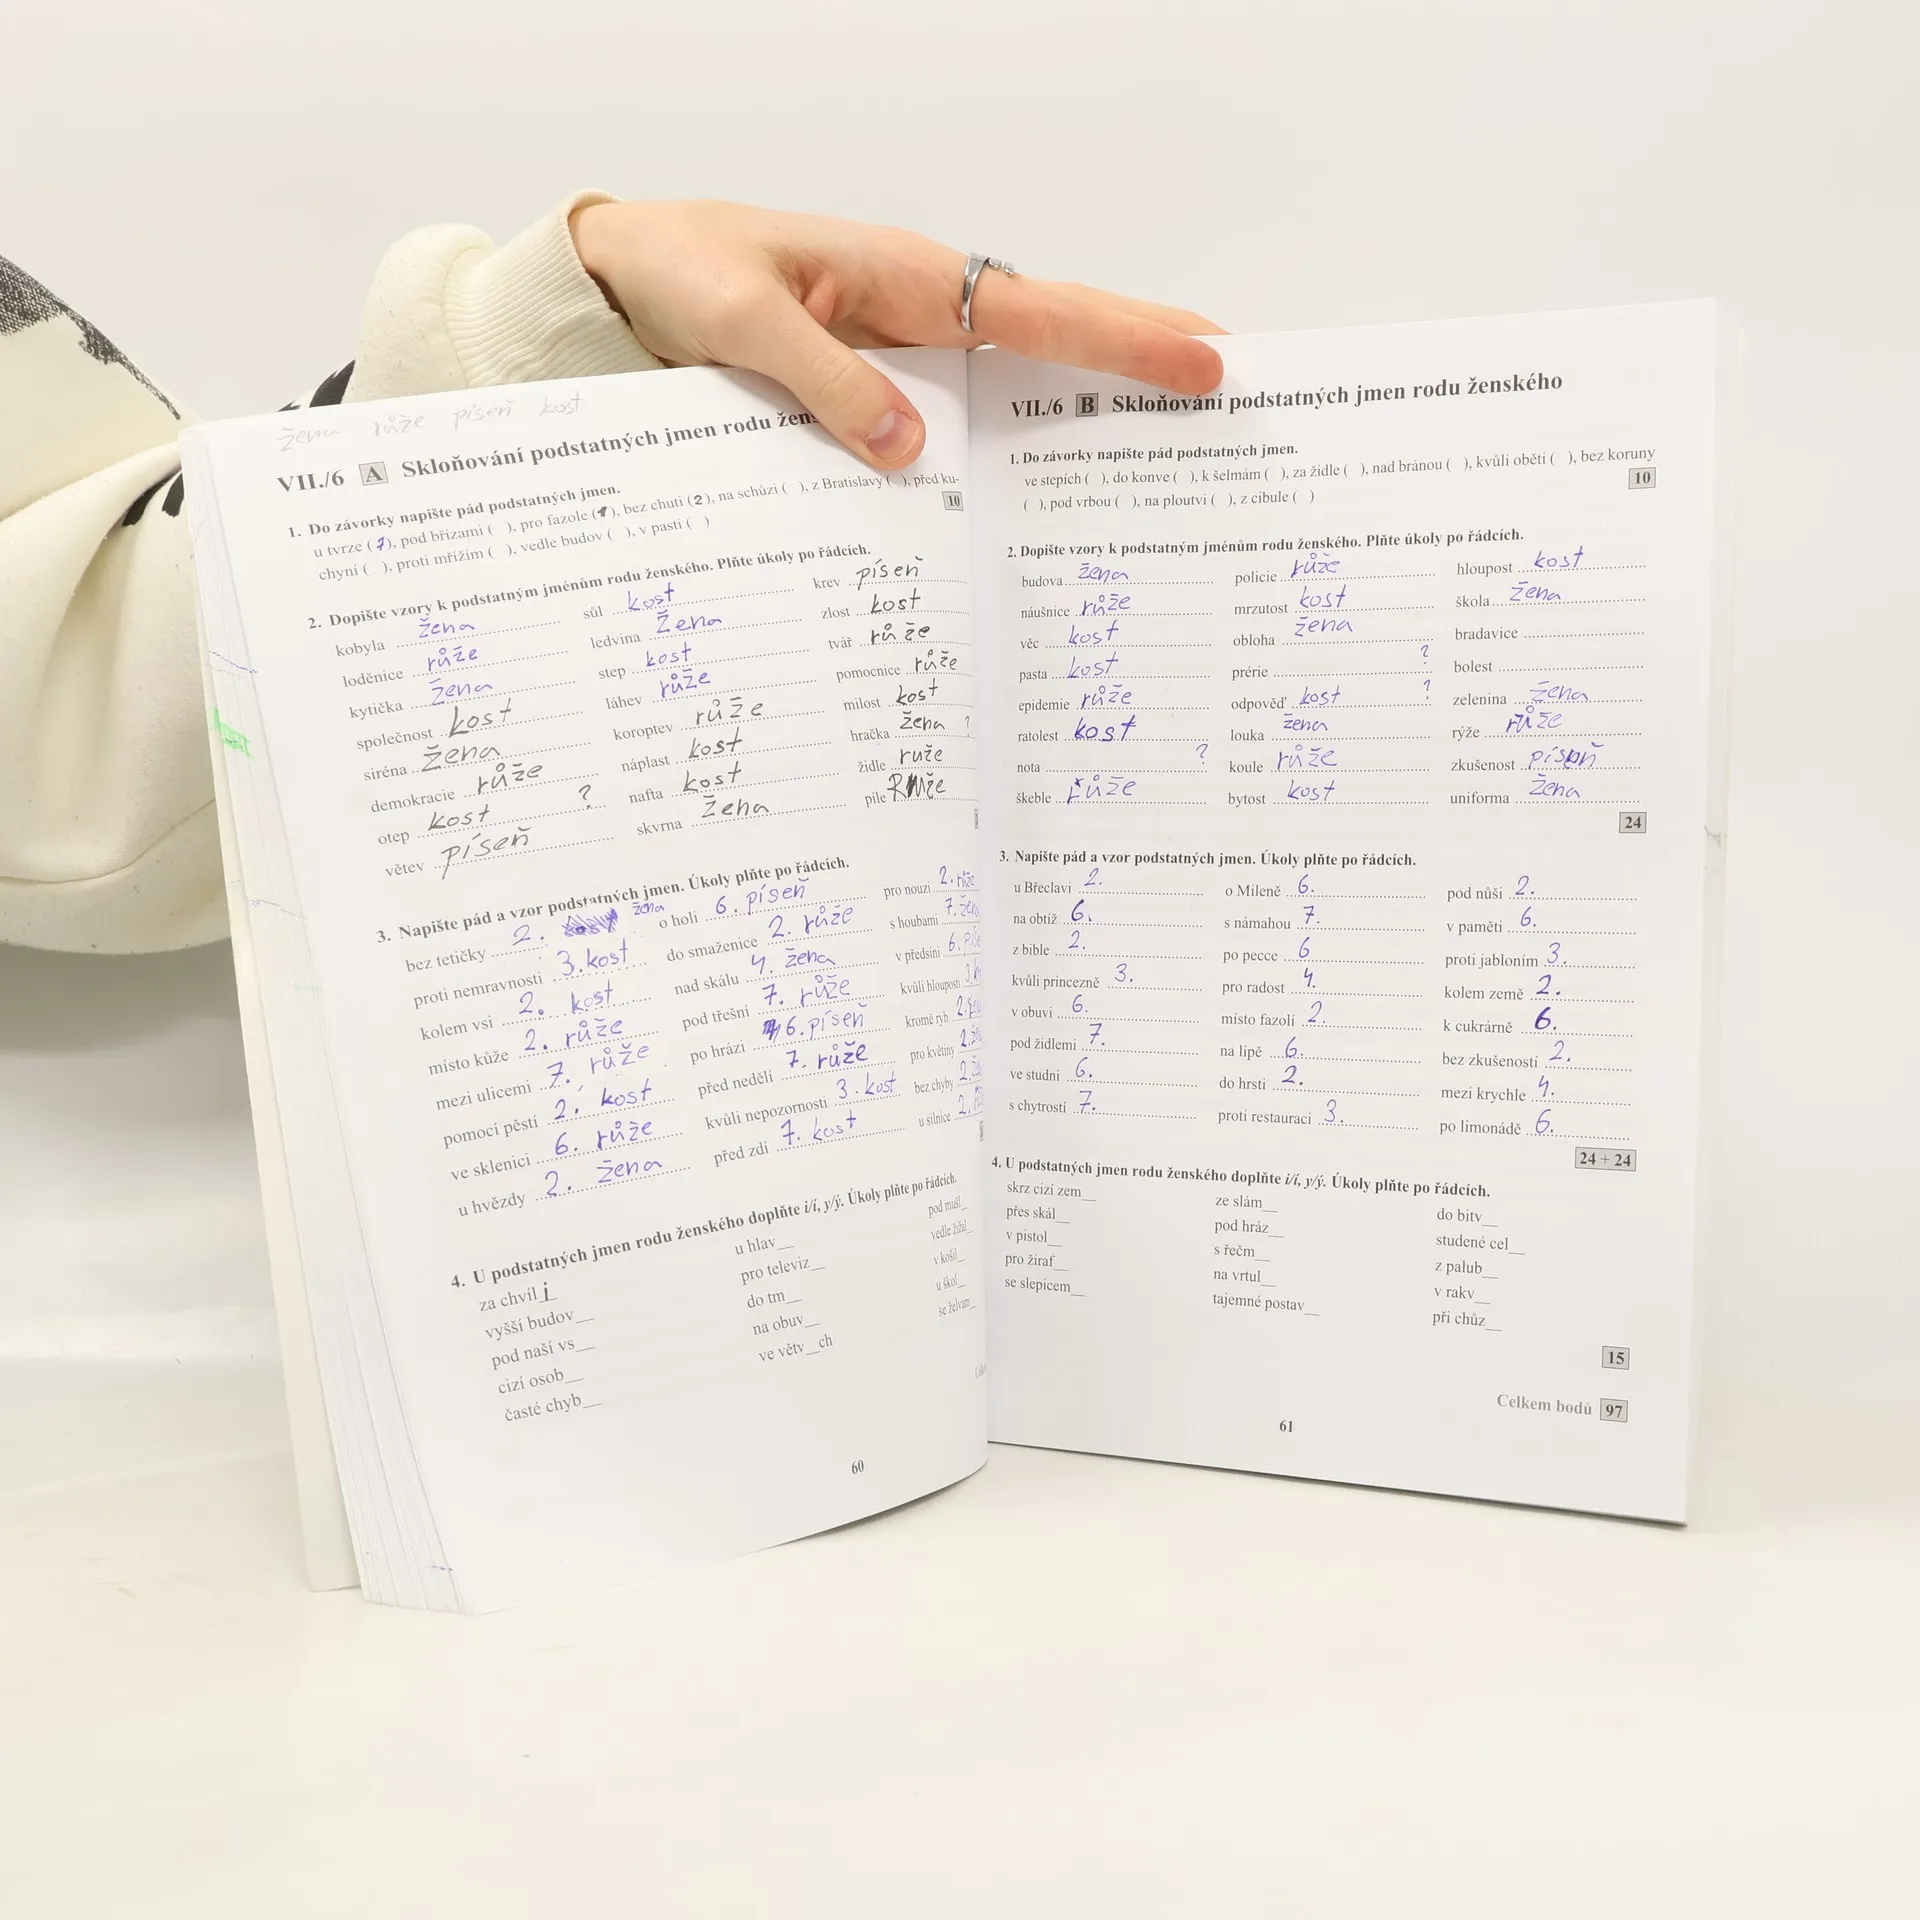 žena růže píseň kost
VII./6 A Skloňování podstatných jmen rodu žens
1. Do závorky napište pád podstatných jmen.
u tvrze (7), pod břízami ( ), pro fazole (1), bez chuti (2), na schůzi ( ), z Bratislavy ( ), před ku-
chyní ( ), proti mřížím ( ), vedle budov ( ), v pasti ( )
10
2. Dopište vzory k podstatným jménům rodu ženského. Plňte úkoly po řádcích.
kobyla žena sůl kost krev píseň
loděnice růže ledvina žena zlost kost
kytička žena step kost tvář růže
společnost kost láhev růže pomocnice růže
siréna žena koroptev růže milost kost
demokracie růže náplast kost hračka žena ?
otep kost ? nafta kost židle ruže
větev píseň skvrna žena pile
3. Napište pád a vzor podstatných jmen. Úkoly plňte po řádcích.
bez tetičky 2. žena o holi 6. píseň pro nouzi 2. růže
proti nemravnosti 3. kost do smaženice 2. růže s houbami 7. žen
kolem vsi 2. kost nad skálu 4. žena v předsíni 6.
místo kůže 2. růže pod třešní 7. růže kvůli hlouposti 3.
mezi ulicemi 7. růže po hrázi 6. píseň kromě ryb 2.
pomocí pěstí 2. kost před nedělí 7. růže pro květiny 2.
ve sklenici 6. růže kvůli nepozornosti 3. kost bez chyby 2.
u hvězdy 2. žena před zdí 7. kost u silnice 2.
4. U podstatných jmen rodu ženského doplňte i/í, y/ý. Úkoly plňte po řádcích.
za chvíl i u hlav__ pod mušl_
vyšší budov__ pro televiz__ vedle žižal_
pod naší vs__ do tm__ v košil_
cizí osob__ na obuv__ u škol_
časté chyb__ ve větv__ch se želvam_
60
VII./6 B Skloňování podstatných jmen rodu ženského
1. Do závorky napište pád podstatných jmen.
ve stepích ( ), do konve ( ), k šelmám ( ), za židle ( ), nad bránou ( ), kvůli oběti ( ), bez koruny
( ), pod vrbou ( ), na ploutvi ( ), z cibule ( )
10
2. Dopište vzory k podstatným jménům rodu ženského. Plňte úkoly po řádcích.
budova žena policie růže hloupost kost
náušnice růže mrzutost kost škola žena
věc kost obloha žena bradavice
pasta kost prérie ? bolest
epidemie růže odpověď kost ? zelenina žena
ratolest kost louka žena rýže růže
nota ? koule růže zkušenost píseň
škeble růže bytost kost uniforma žena
24
3. Napište pád a vzor podstatných jmen. Úkoly plňte po řádcích.
u Břeclavi 2. o Mileně 6. pod nůši 2.
na obtíž 6. s námahou 7. v paměti 6.
z bible 2. po pecce 6 proti jabloním 3.
kvůli princezně 3. pro radost 4. kolem země 2.
v obuvi 6. místo fazolí 2. k cukrárně 6.
pod židlemi 7. na lípě 6. bez zkušeností 2.
ve studni 6. do hrsti 2. mezi krychle 4.
s chytrostí 7. proti restauraci 3. po limonádě 6.
24 + 24
4. U podstatných jmen rodu ženského doplňte i/í, y/ý. Úkoly plňte po řádcích.
skrz cizí zem__ ze slám__ do bitv__
přes skál__ pod hráz__ studené cel__
v pistol__ s řečm__ z palub__
pro žiraf__ na vrtul__ v rakv__
se slepicem__ tajemné postav__ při chůz__
15
Celkem bodů 97
61